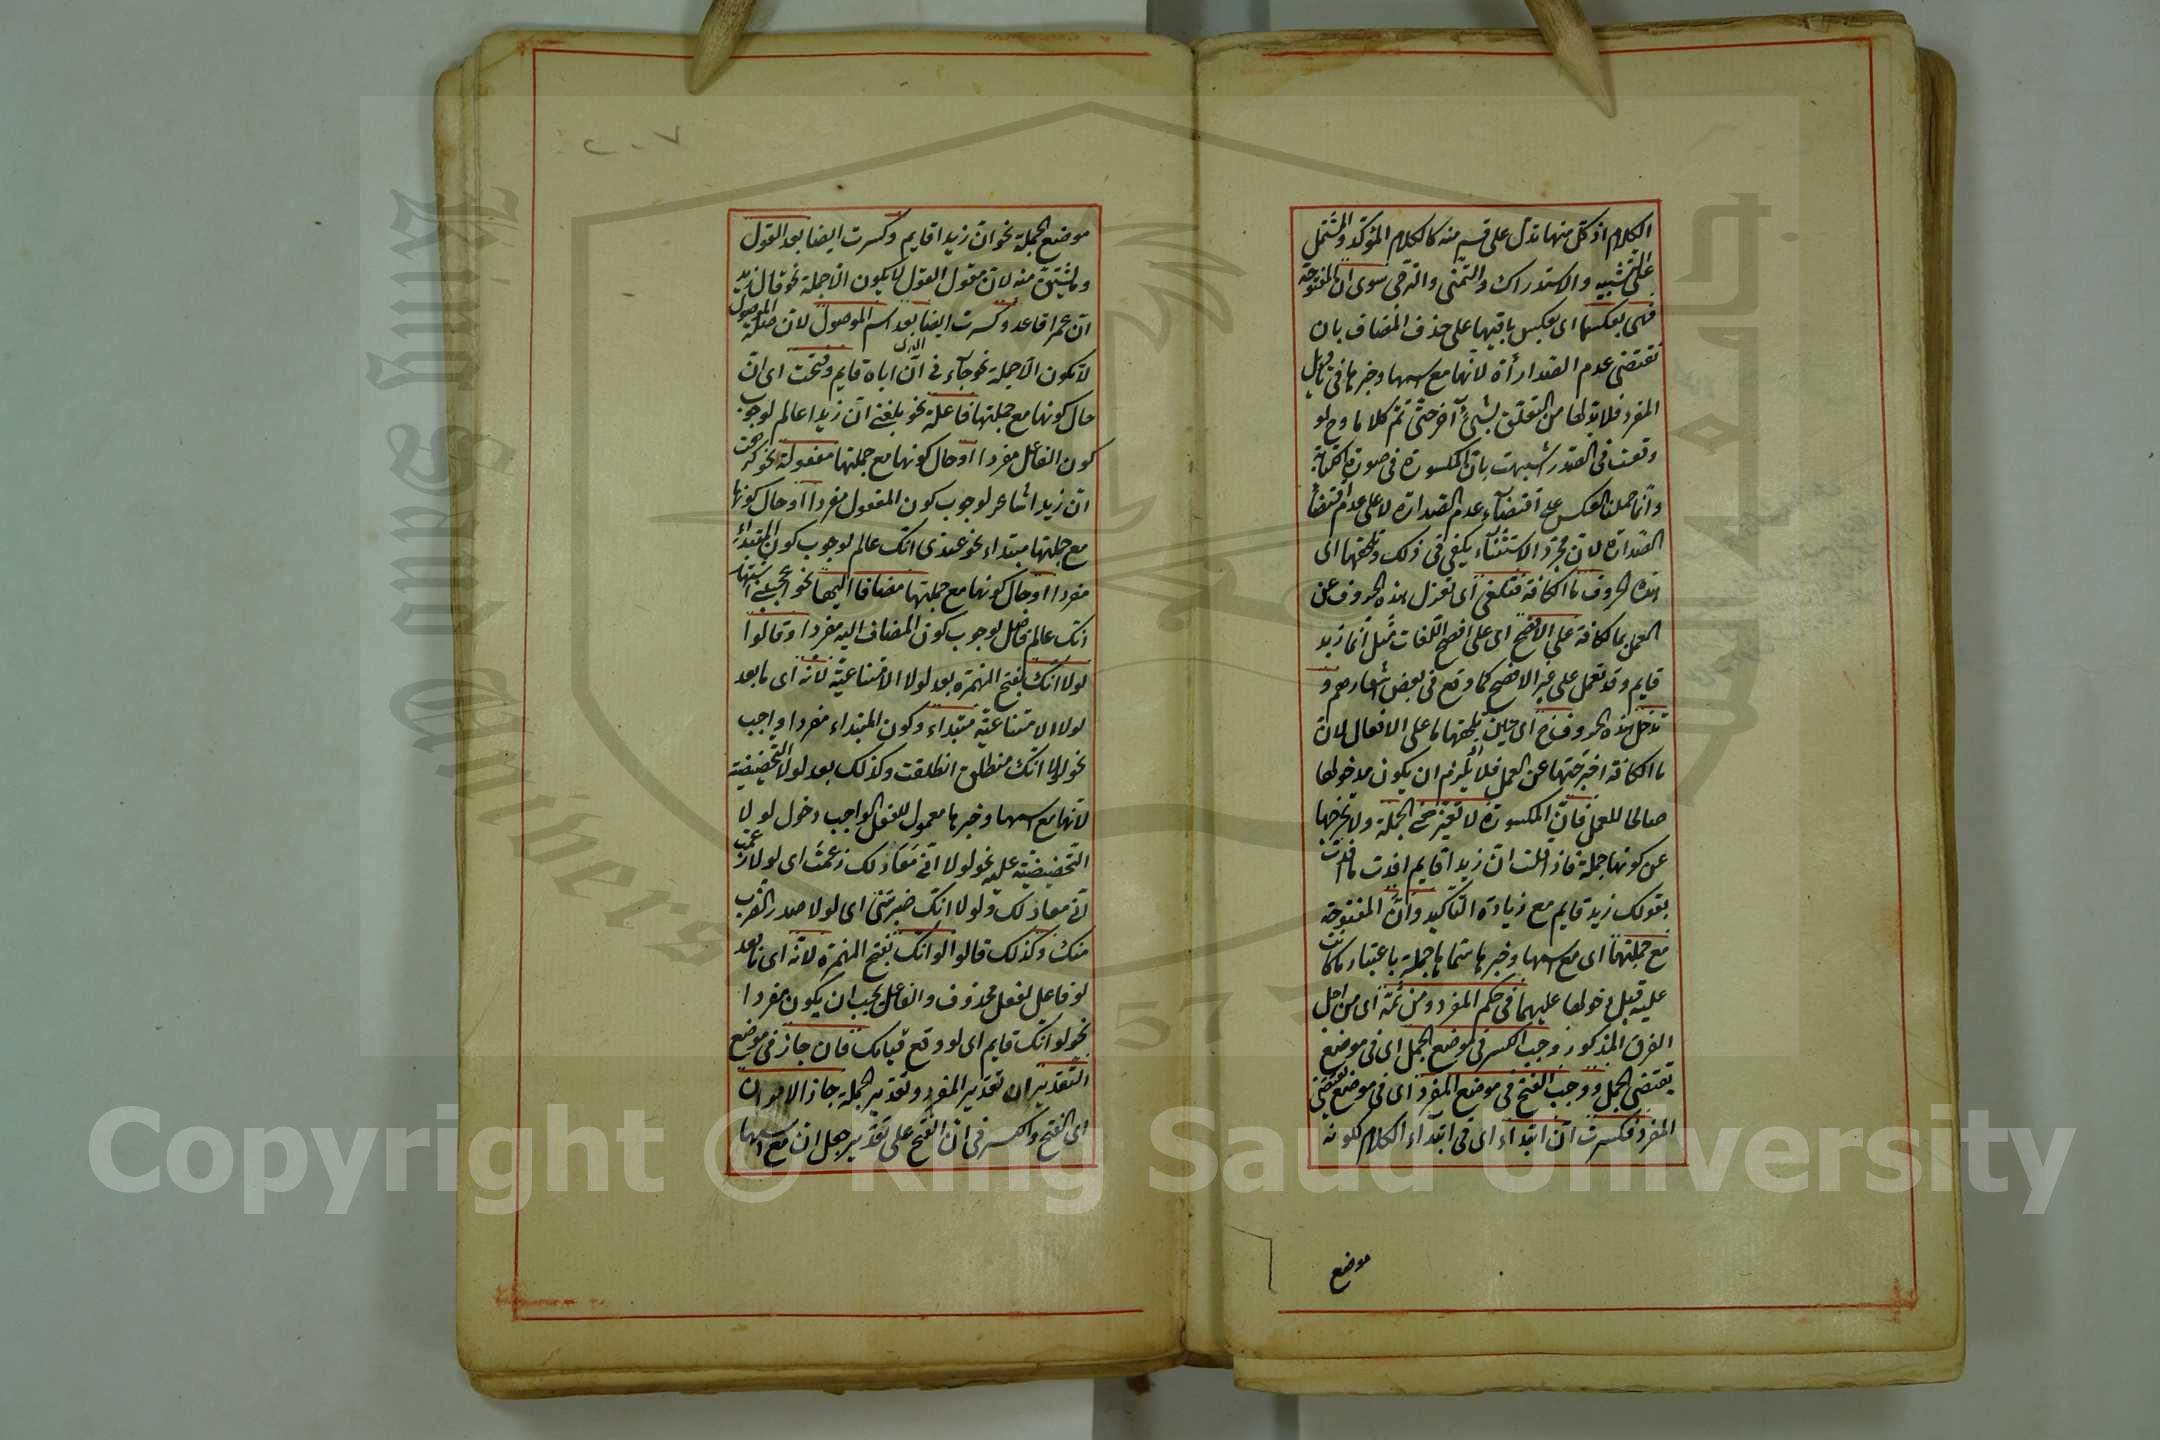 الكلام اذ كل منها تدل على قسم منه كالكلام المؤكد والمشتمل
على التشبيه والاستدراك والتمنى والترجى سوى ان المفتوحة
فهى بعكسها اى بعكس باقيها على حذف المضاف بان
تقتضى عدم الصدارأة لانها مع اسمها وخبرها فى تاويل
المفرد فلا بد لها من التعلق بشئ آخر حتى تتم كلاما وح لو
وقعت فى الصدر اشبهت بان المكسورة فى صورة الكتابة
وانما حملنا العكس على اقتضاء عدم الصدارة لا على عدم اقتضاء
الصدارة لان مجرد الاستثناء يكفى فى ذلك وتلحقها اى
هذه الحروف ما الكافة فتلغى اى تعزل هذه الحروف عن
العمل بما الكافة على الافصح اى على افصح اللغات مثل انما زيد
قايم وقد تعمل على غير الافصح كما وقع فى بعض اشعارهم و
تدخل هذه الحروف ح اى حين تلحقها ما على الافعال لان
ما الكافة اخرجتها عن العمل فلا يلزم ان يكون مدخولها
صالحا للعمل فان المكسورة لا تغير معنى الجملة ولا تخرجها
عن كونها جملة فاذا قلت ان زيدا قايم افدت ما افدت
بقولك زيد قايم مع زيادة التاكيد وان المفتوحة
مع جملتها اى مع اسمها وخبرها سماها جملة باعتبار ما كانت
عليه قبل دخولها عليهما فى حكم المفرد ومن ثمة اى من اجل
الفرق المذكور وجب الكسر فى موضع الجمل اى فى موضع
يقتضى الجمل ووجب الفتح فى موضع المفرد اى فى موضع يقتضى
المفرد فكسرت ان ابتداء اى فى ابتداء الكلام لكونه
موضع
٢٠٧
موضع الجملة نحو ان زيدا قايم وكسرت ايضا بعد القول
وما يشتق منه لان مقول القول لا يكون الا جملة نحو قال زيد
ان عمرا قاعد وكسرت ايضا بعد اسم الموصول لان صلة الموصول
لا تكون الا جملة نحو جاءنى الذى ان اباه قايم وفتحت اى ان
حال كونها مع جملتها فاعلة نحو بلغنى ان زيدا عالم لوجوب
كون الفاعل مفردا او حال كونها مع جملتها مفعولة نحو كرهت
ان زيدا شاعر لوجوب كون المفعول مفردا او حال كونها
مع جملتها مبتداء نحو عندى انك عالم لوجوب كون المبتداء
مفردا او حال كونها مع جملتها مضافا اليها نحو اعجبنى اشتهار
انك عالم فاضل لوجوب كون المضاف اليه مفردا وقالوا
لولا انك بفتح الهمزة بعد لولا الامتناعية لانه اى ما بعد
لولا الامتناعية مبتداء وكون المبتداء مفردا واجب
نحو لولا انك منطلق انطلقت وكذلك بعد لولا التحضيضية
لانها مع اسمها وخبرها معمول للفعل الواجب دخول لولا
التحضيضية عليه نحو لولا انى معاذ لك زعمت اى لولا زعمت
انى معاذ لك ولولا انك ضربتنى اى لولا صدر الضرب
منك وكذلك قالوا لو انك بفتح الهمزة لانه اى ما بعد
لو فاعل لفعل محذوف والفاعل يجب ان يكون مفردا
نحو لو انك قايم اى لو وقع قيامك فان جاز فى موضع
التقديران تقدير المفرد وتقدير الجملة جاز الامران
اى الفتح والكسر فى ان الفتح على تقدير جعل ان مع اسمها